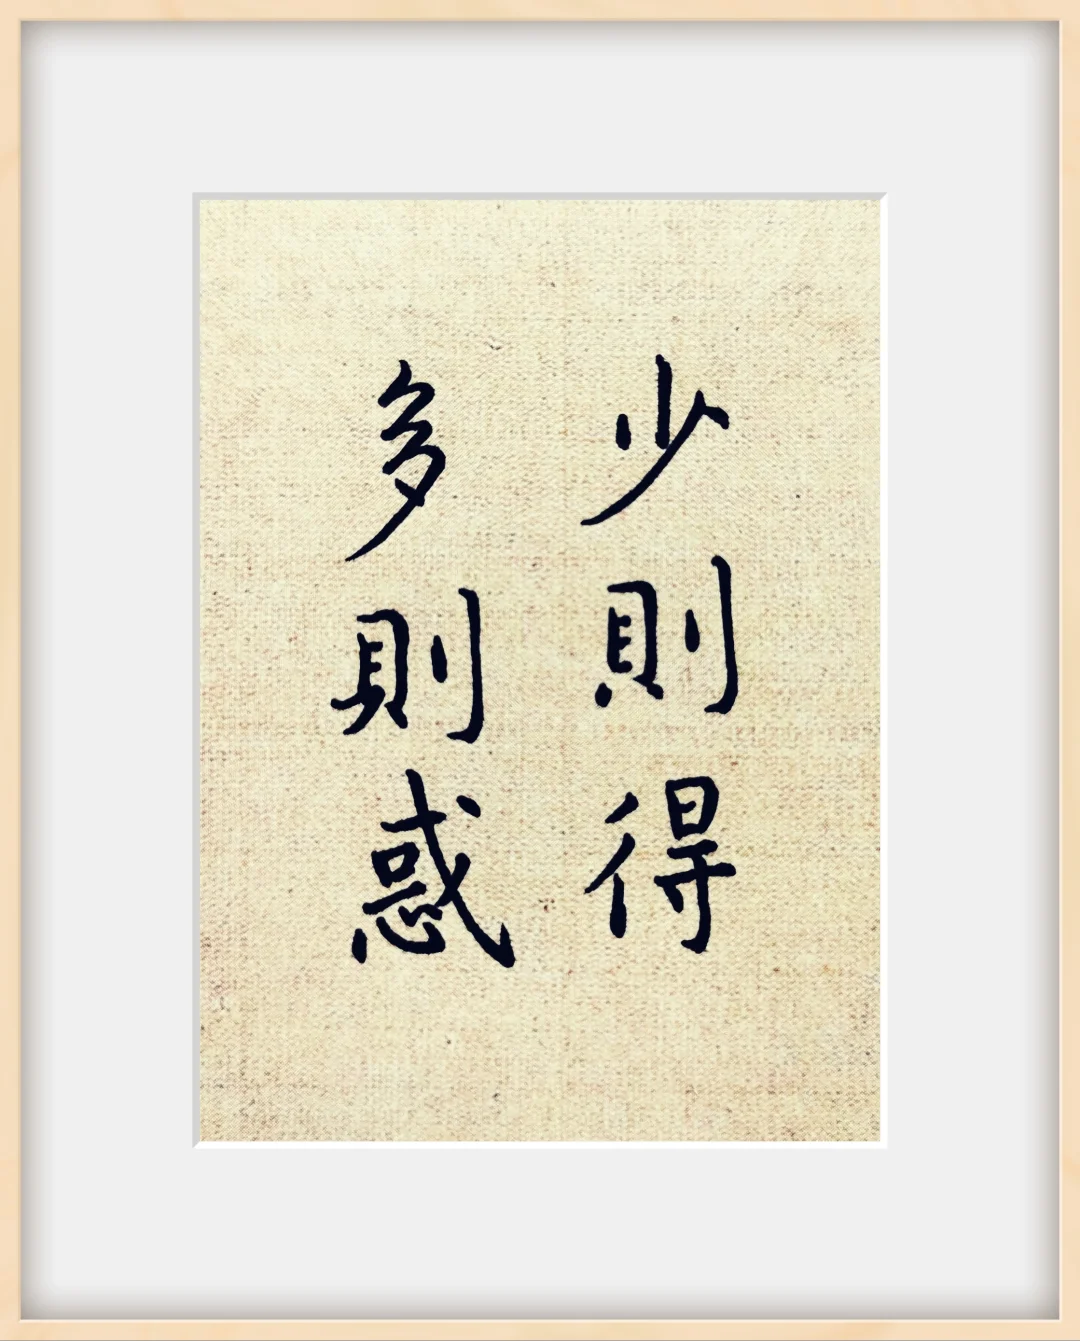 少則得
多則惑